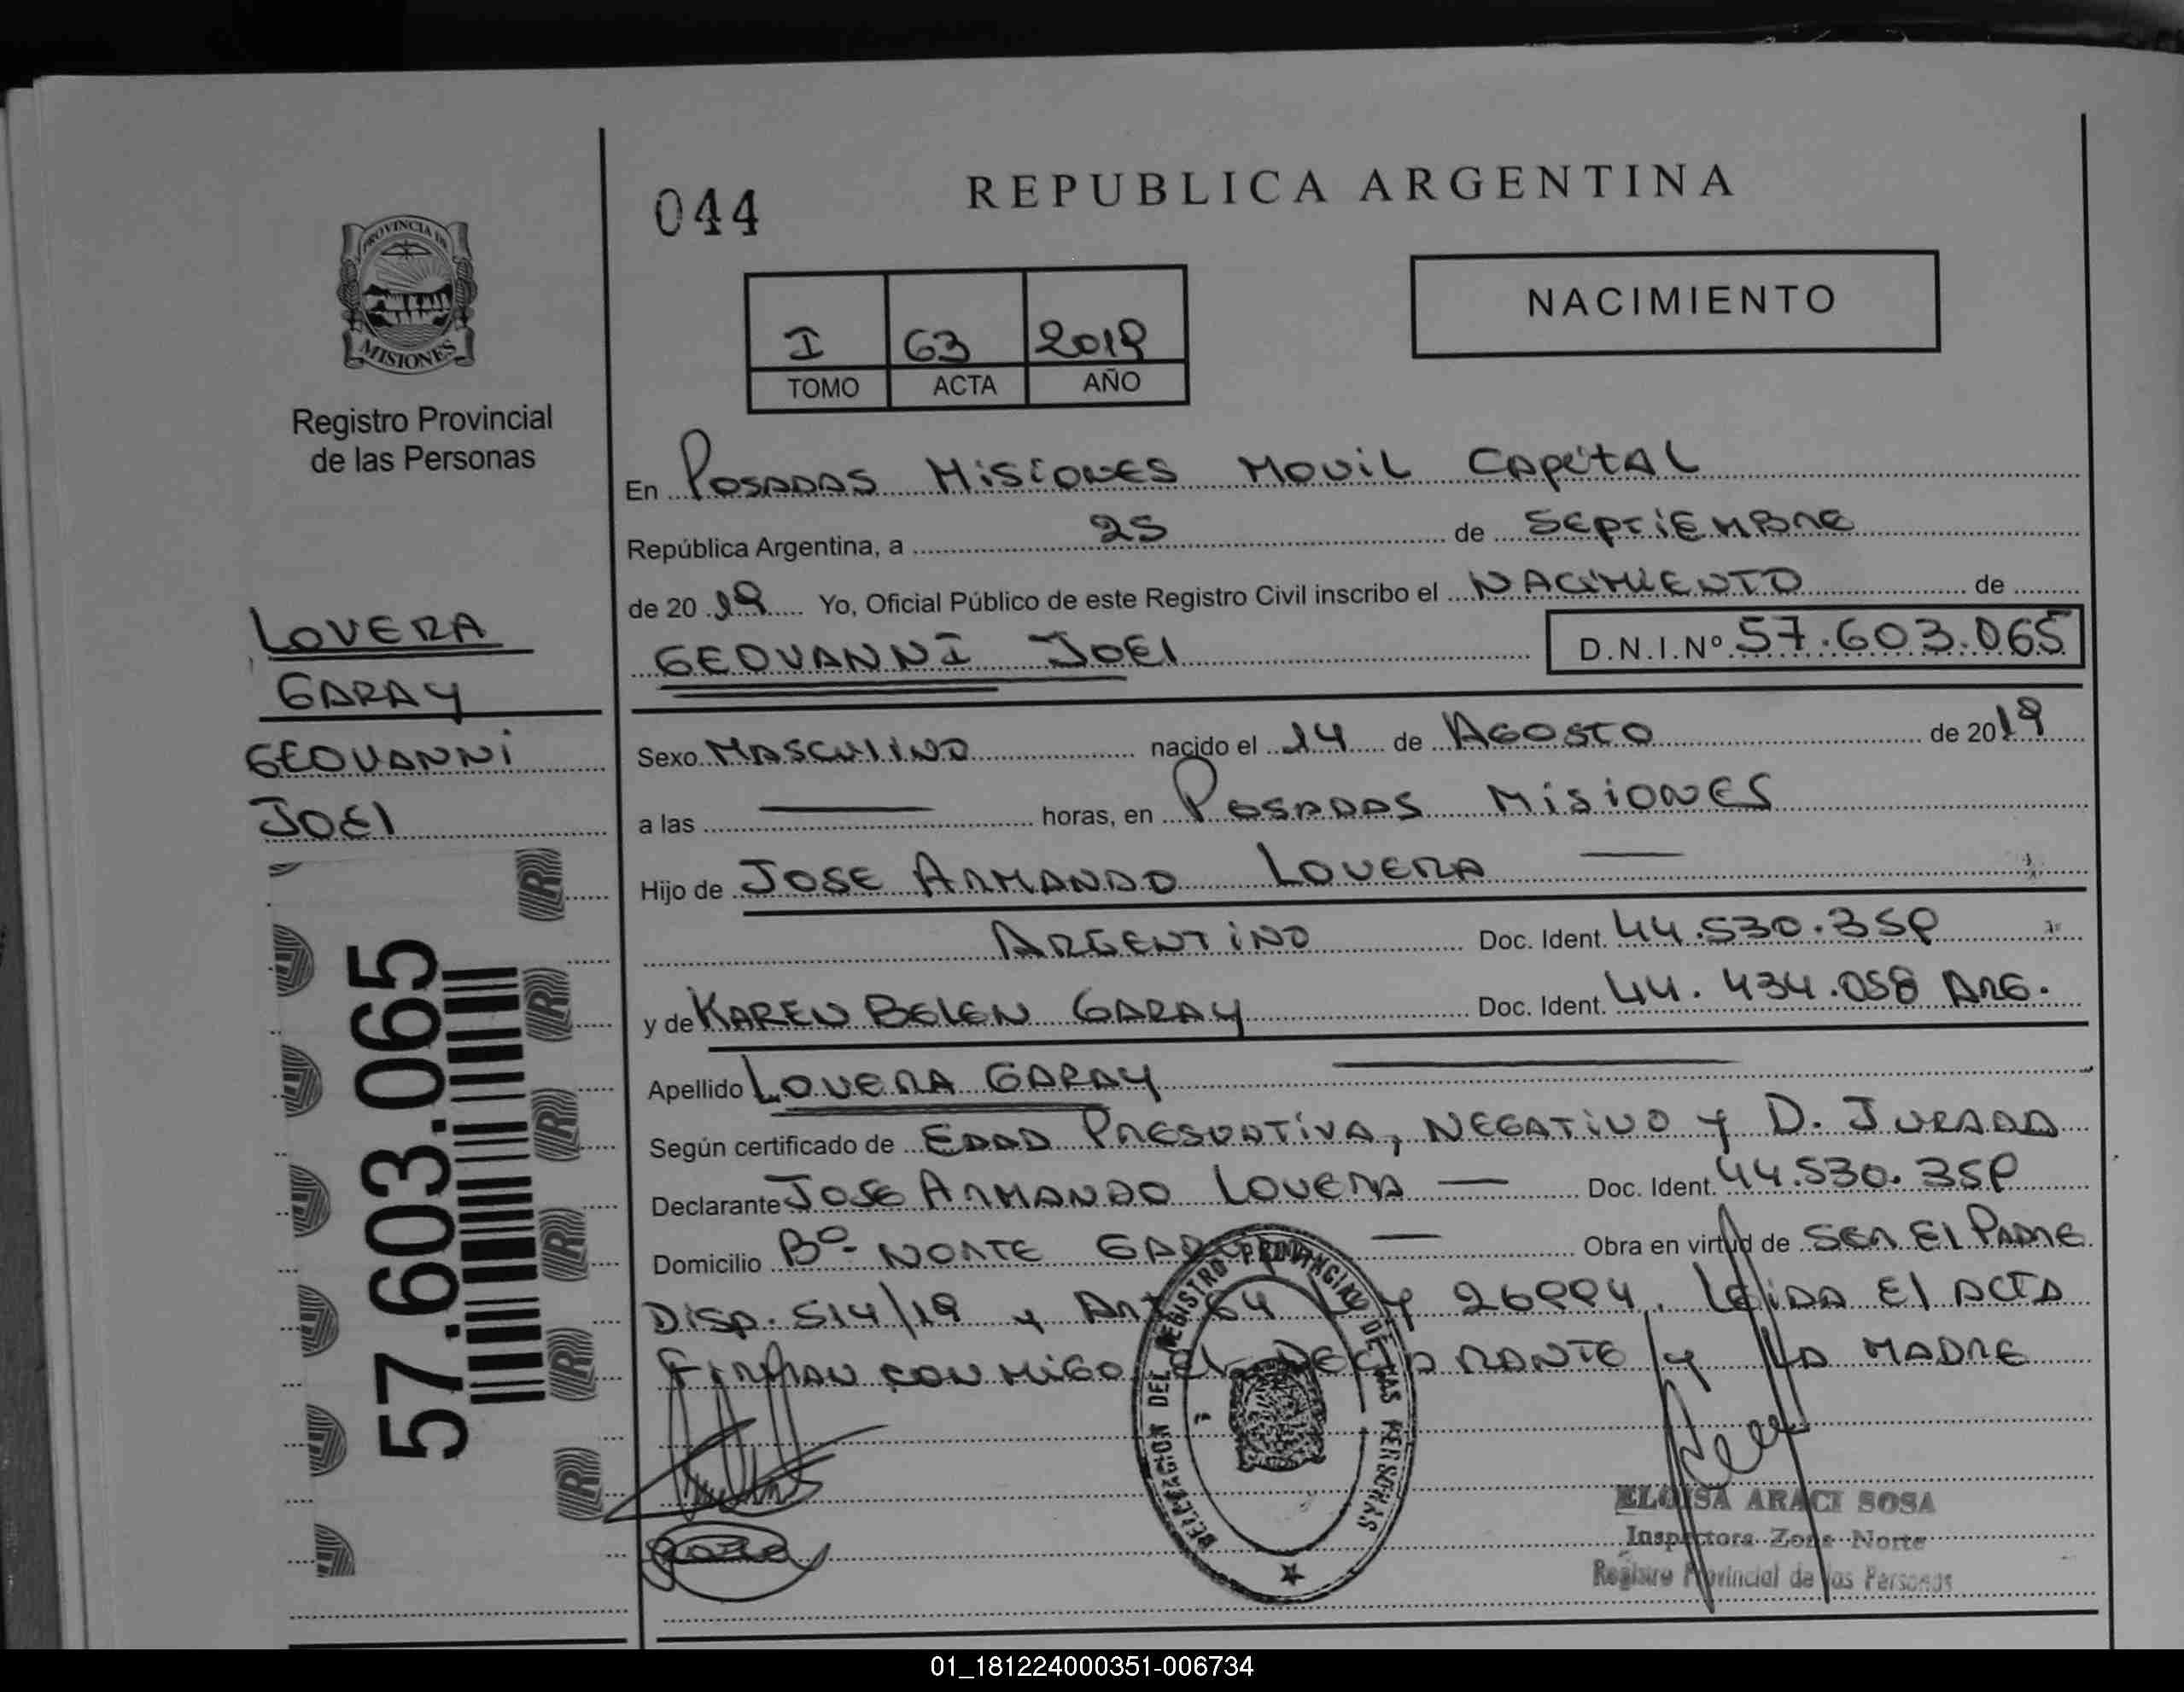 REPUBLICA ARGENTINA
044
NACIMIENTO
I 63 2019
TOMO ACTA AÑO
PROVINCIA DE
MISIONES
Registro Provincial
de las Personas
LOVERA
GARAY
GEOVANNI
JOEl
57.603.065
En POSADAS MISIONES MOVIL CAPITAL
República Argentina, a 25 de SEPTIEMBRE
de 20 19 Yo, Oficial Público de este Registro Civil inscribo el NACIMIENTO de
GEOVANNI JOEl D.N.I.Nº 57.603.065
Sexo MASCULINO nacido el 14 de AGOSTO de 2019
a las — horas, en POSADAS MISIONES
Hijo de JOSE ARMANDO LOVERA —
ARGENTINO Doc. Ident. 44.530.359
y de KAREN BELEN GARAY Doc. Ident. 44.434.058 ARG.
Apellido LOVERA GARAY —
Según certificado de EDAD PRESUNTIVA, NEGATIVO Y D. JURADA
Declarante JOSE ARMANDO LOVERA — Doc. Ident. 44.530.359
Domicilio Bº NORTE — Obra en virtud de SER El PADRE
DISP. 514/19 y ART 64 LEY 26994. LEIDA El ACTA
FIRMAN CONMIGO EL DECLARANTE y LA MADRE
DELEGACION DEL REGISTRO PROVINCIAL DE LAS PERSONAS
ELOISA ARACI SOSA
Inspectora Zona Norte
Registro Provincial de las Personas
01_181224000351-006734